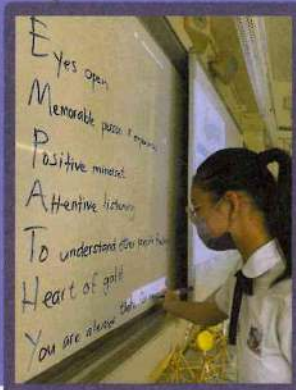 Eyes open
Memorable person &
Positive mindset
Attentive listening
To understand other
Heart of gold
You are always there to